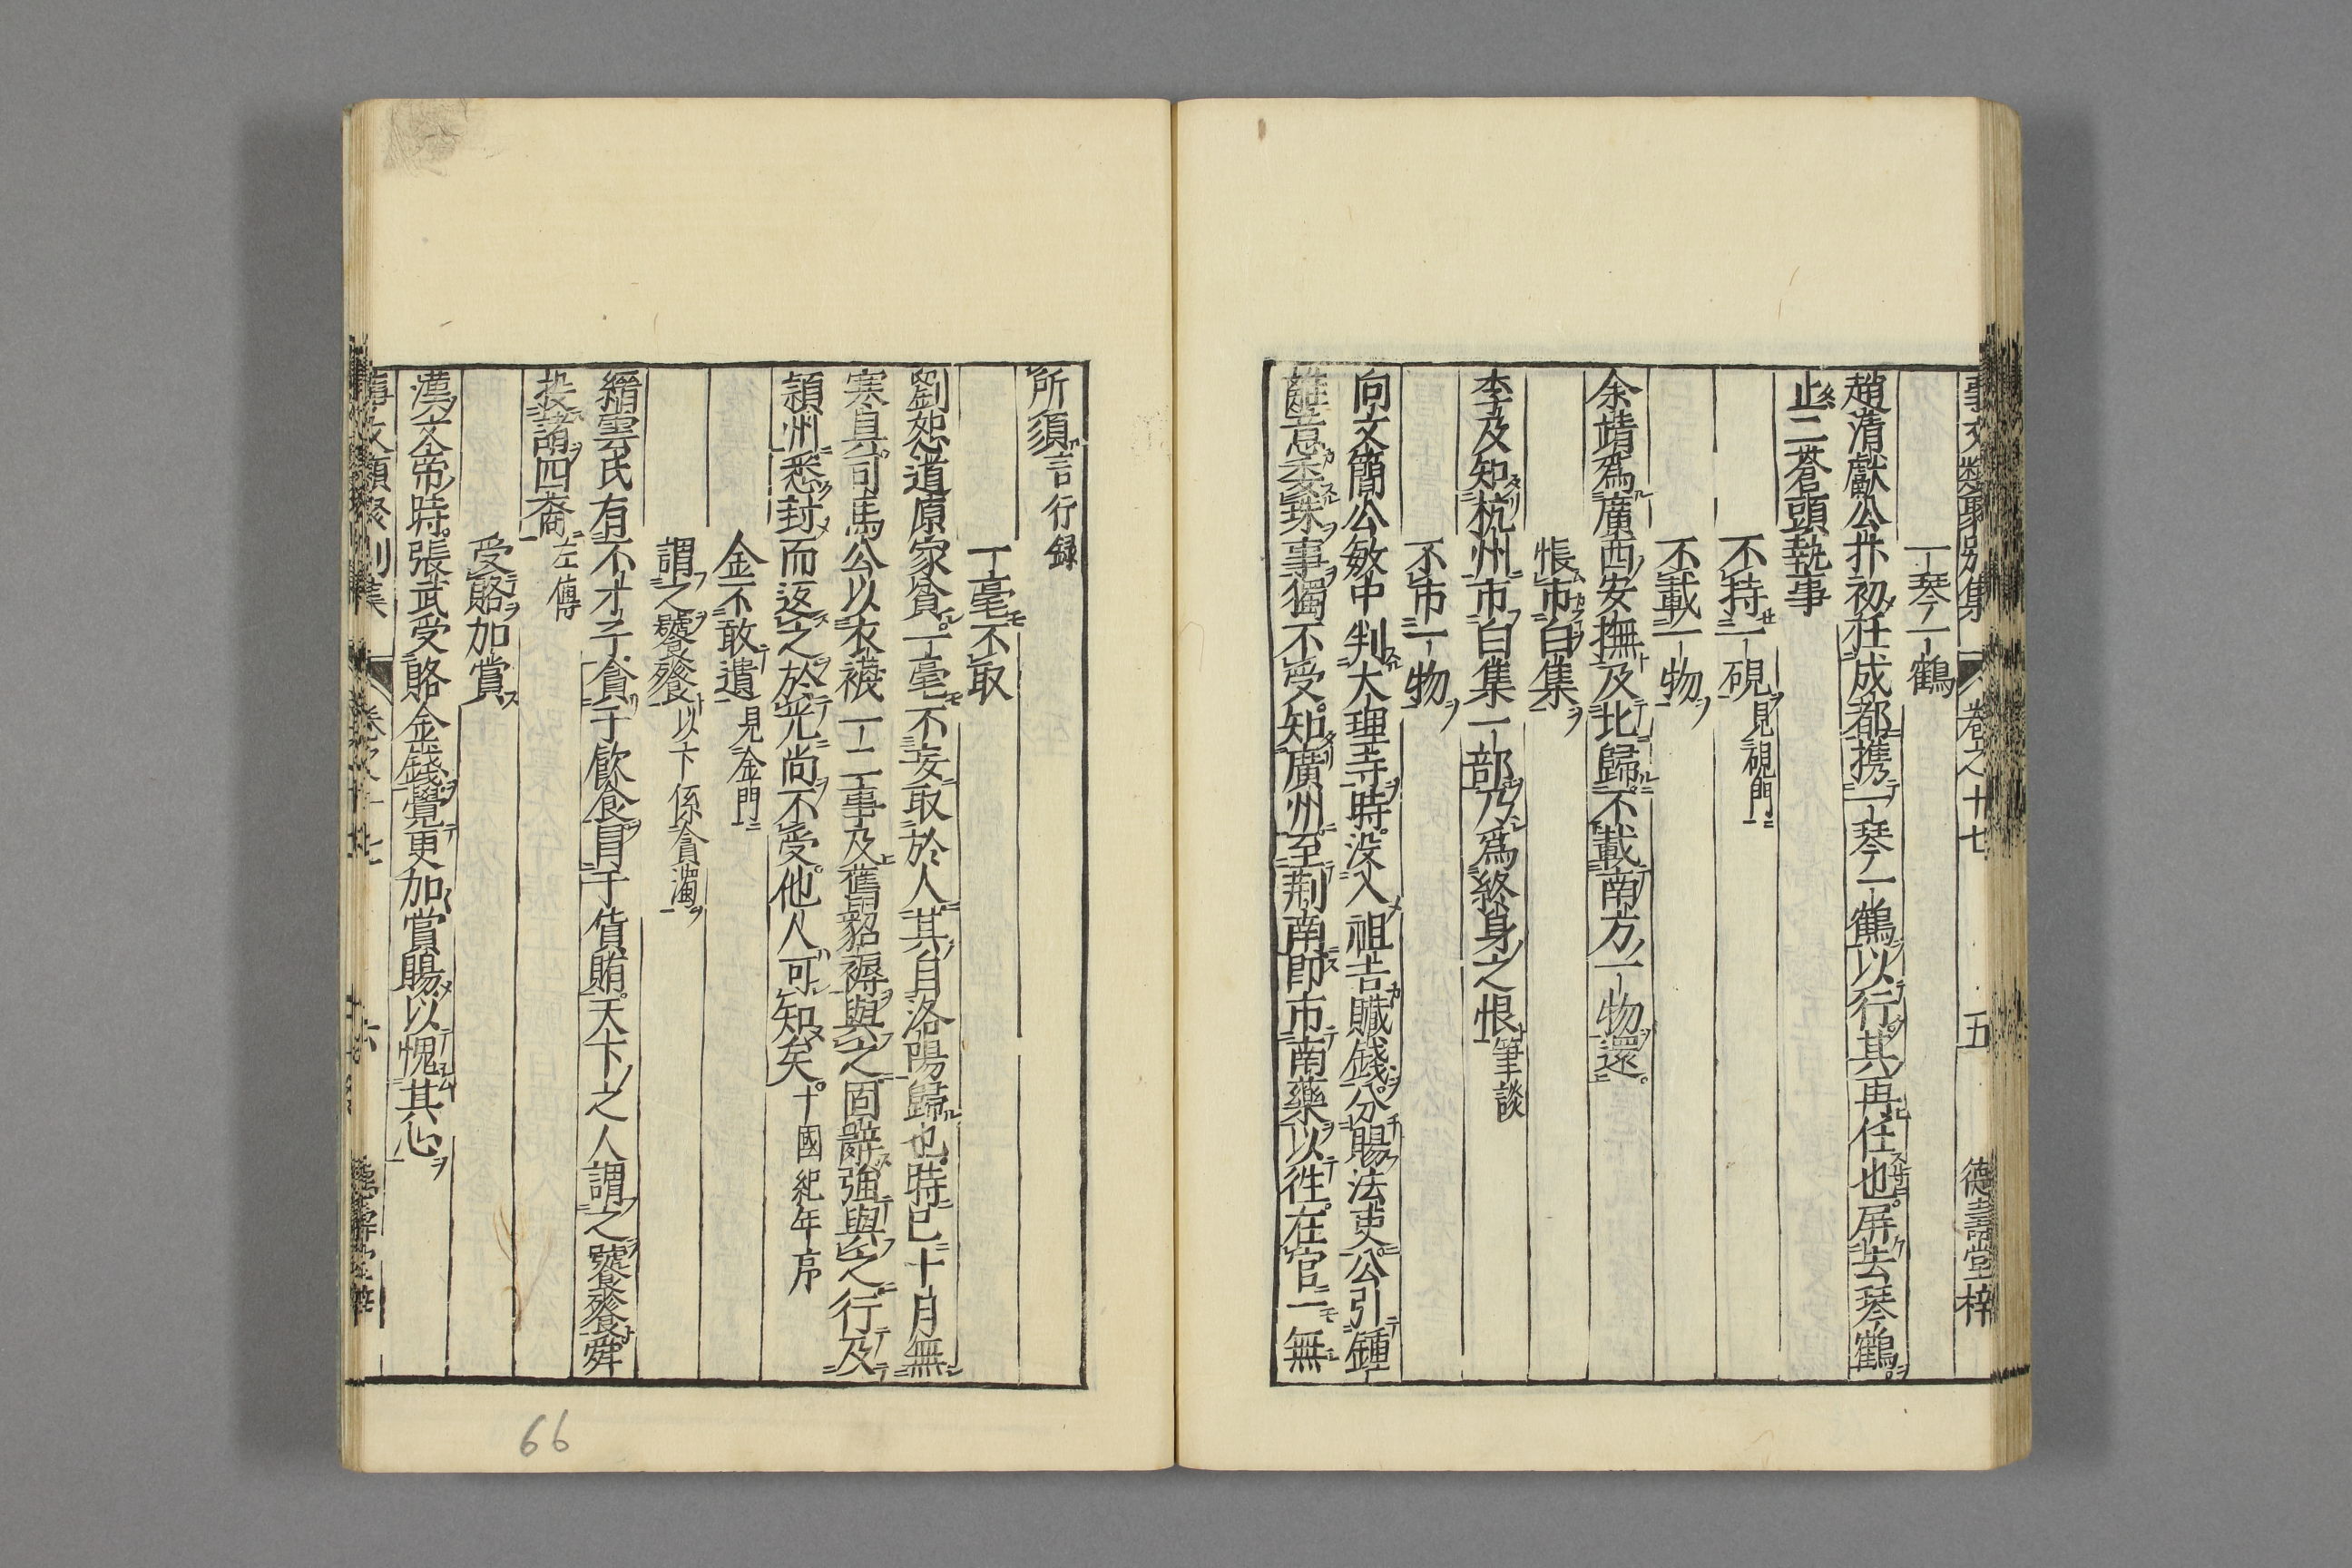 事文類聚別集 卷之十七 五 德壽堂梓
一琴一鶴
趙清獻公抃初任成都攜一琴一鶴以行其再任也屏去琴鶴
止二蒼頭執事
不持一硯見硯門
不載一物
余靖爲廣西安撫及北歸不載南方一物還
悵市白集
李及知杭州市白集一部乃爲終身之恨筆談
不市一物
向文簡公敏中判大理寺時沒入祖吉贓錢分賜法吏公引鍾
離意委珠事獨不受知廣州至荆南即市南藥以徃在官一無
所須言行録
一毫不取
劉恕道原家貧一毫不妄取於人其自洛陽歸也時已十月無
寒具司馬公以衣襪一二事及舊貂褥與之固辭強與之行及
頴州悉封而返之於光尚不受他人可知矣十國紀年序
金不敢遺見金門
謂之饕餮以下係貪濁
縉雲氏有不才子貪于飲食冒于貨賄天下之人謂之饕餮舜
投諸四裔左傳
受賂加賞
漢文帝時張武受賂金錢覺更加賞賜以愧其心